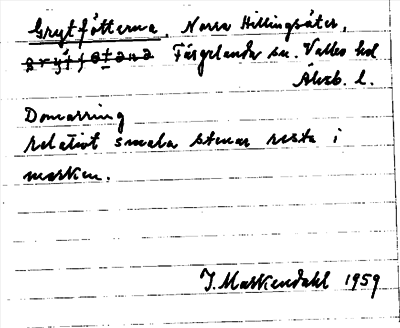 Grytfötterna, Norra Hillingsäter,
Färgelanda sn. Valbo hd
Älvsb. l.
Domarring
relativt smala stenar resta i
marken.
J. Markendahl 1959